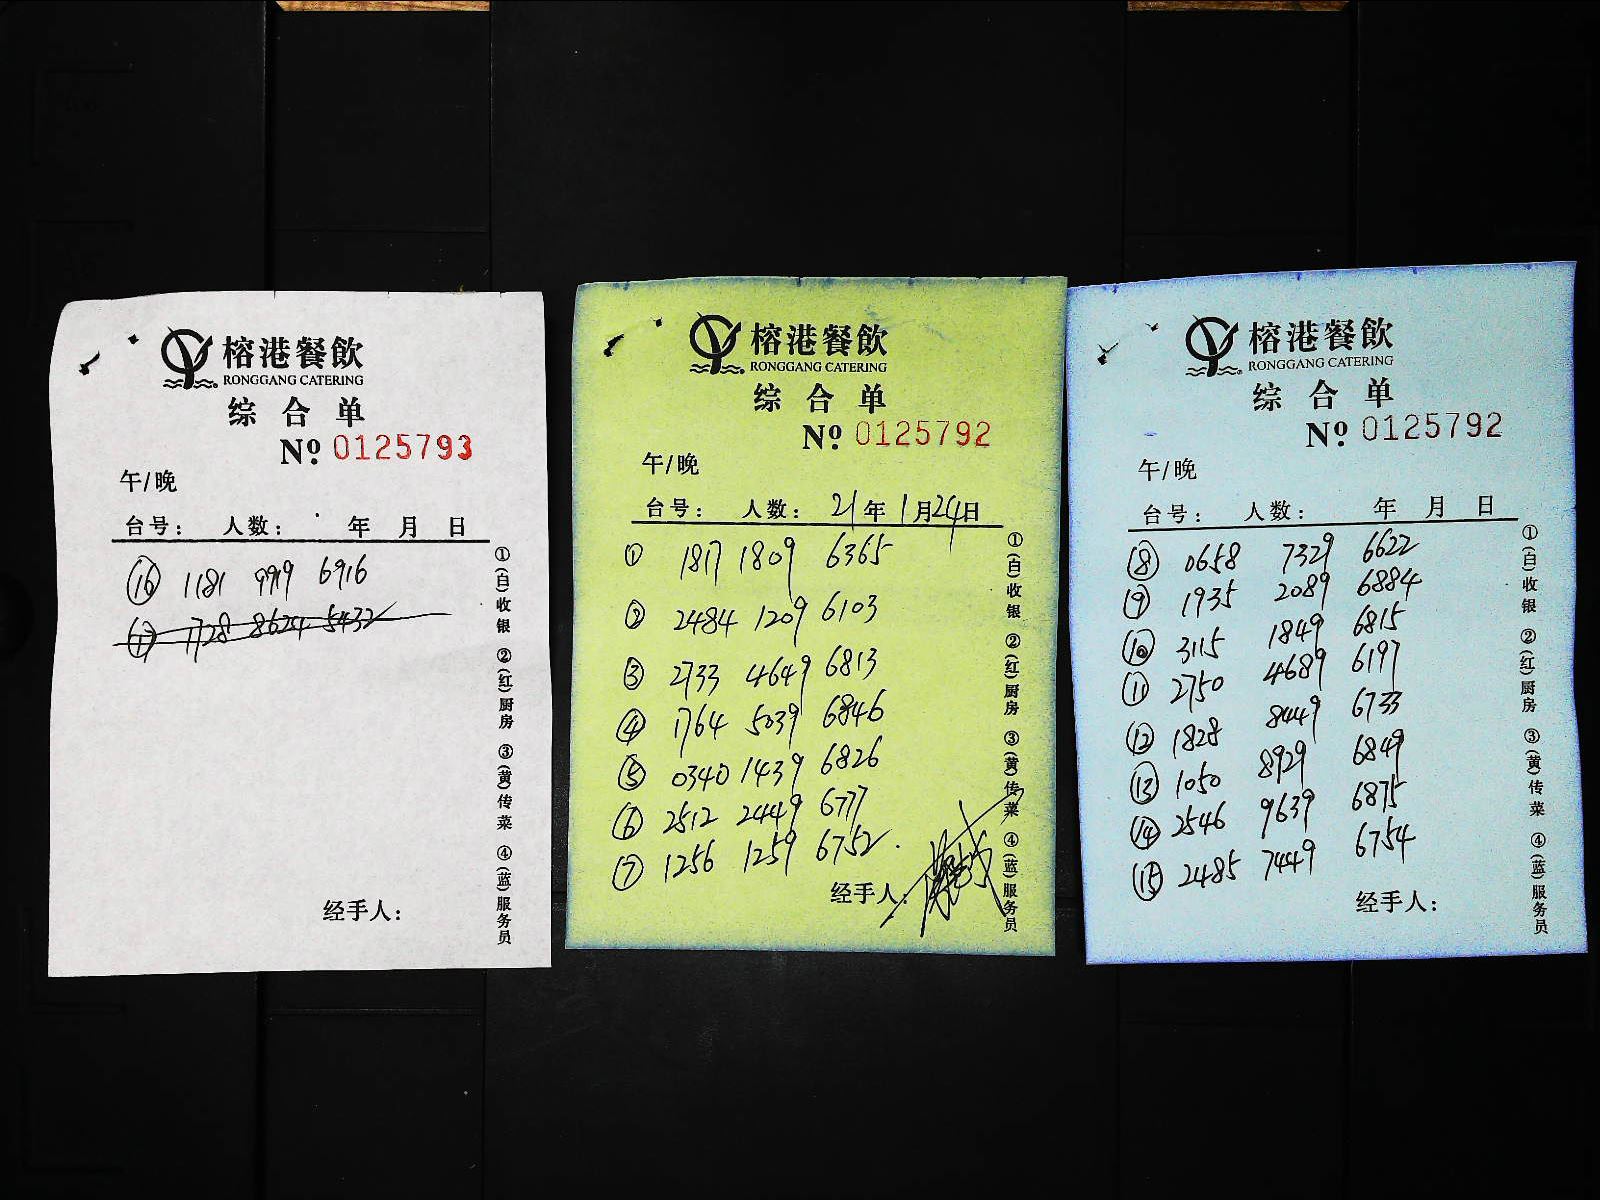 榕港餐飲
RONGGANG CATERING
综合单
Nº 0125793
午/晚
台号： 人数： 年 月 日
⑯ 1181 9919 6916
⑰ 1728 8624 5432
经手人：
①(白)收银 ②(红)厨房 ③(黄)传菜 ④(蓝)服务员
榕港餐飲
RONGGANG CATERING
综合单
Nº 0125792
午/晚
台号： 人数： 21年 1月24日
① 1817 1809 6365
② 2484 1209 6103
③ 2733 4649 6813
④ 1764 5039 6846
⑤ 0340 1439 6826
⑥ 2512 2449 6777
⑦ 1256 1259 6752.
经手人：
①(白)收银 ②(红)厨房 ③(黄)传菜 ④(蓝)服务员
榕港餐飲
RONGGANG CATERING
综合单
Nº 0125792
午/晚
台号： 人数： 年 月 日
⑧ 0658 7329 6622
⑨ 1935 2089 6884
⑩ 3115 1849 6815
⑪ 2750 4689 6197
⑫ 1828 8449 6733
⑬ 1050 8929 6849
⑭ 2546 9639 6875
⑮ 2485 7449 6754
经手人：
①(白)收银 ②(红)厨房 ③(黄)传菜 ④(蓝)服务员